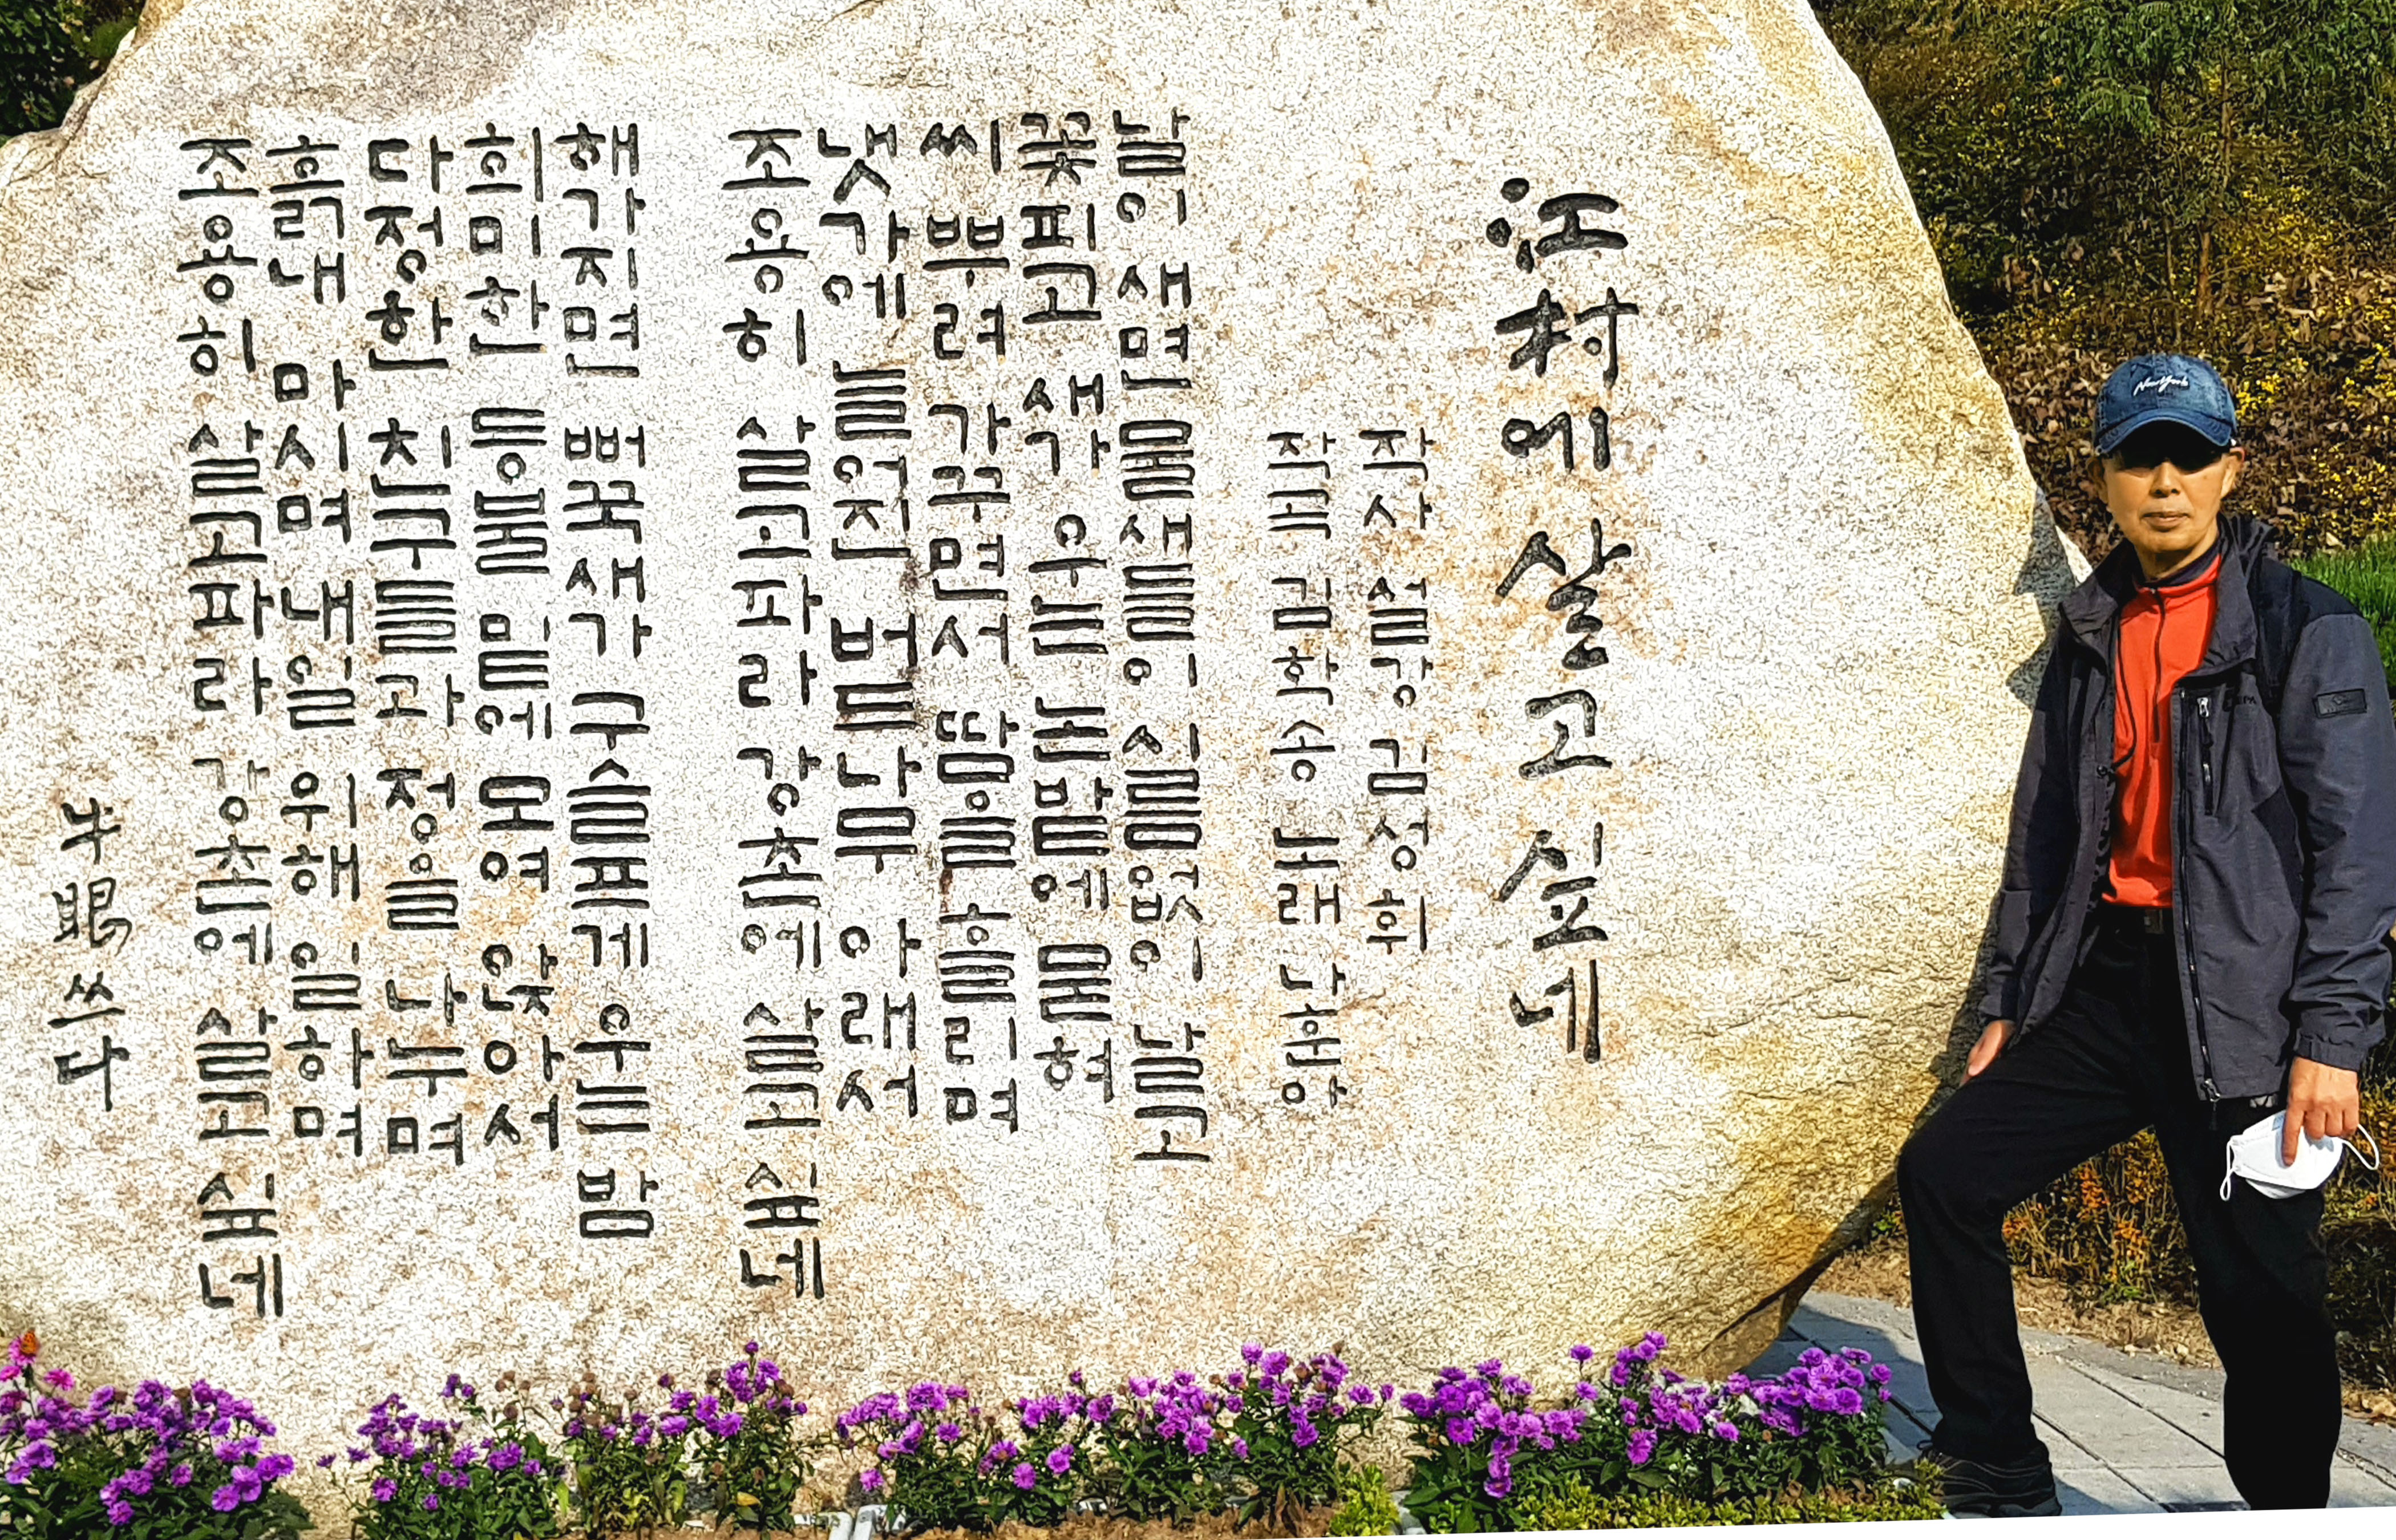 江村에 살고 싶네
작사 설강 김성휘
작곡 김학송 노래 나훈아
날이 새면 물새들이 시름없이 날고
꽃피고 새가 우는 논밭에 묻혀
씨 뿌려 가꾸면서 땀을 흘리며
냇가에 늘어진 버드나무 아래서
조용히 살고파라 강촌에 살고 싶네
해가 지면 뻐꾹새가 구슬프게 우는 밤
희미한 등불 밑에 모여 앉아서
다정한 친구들과 정을 나누며
흙내 마시며 내일 위해 일하며
조용히 살고파라 강촌에 살고 싶네
牛眼 쓰다
New York